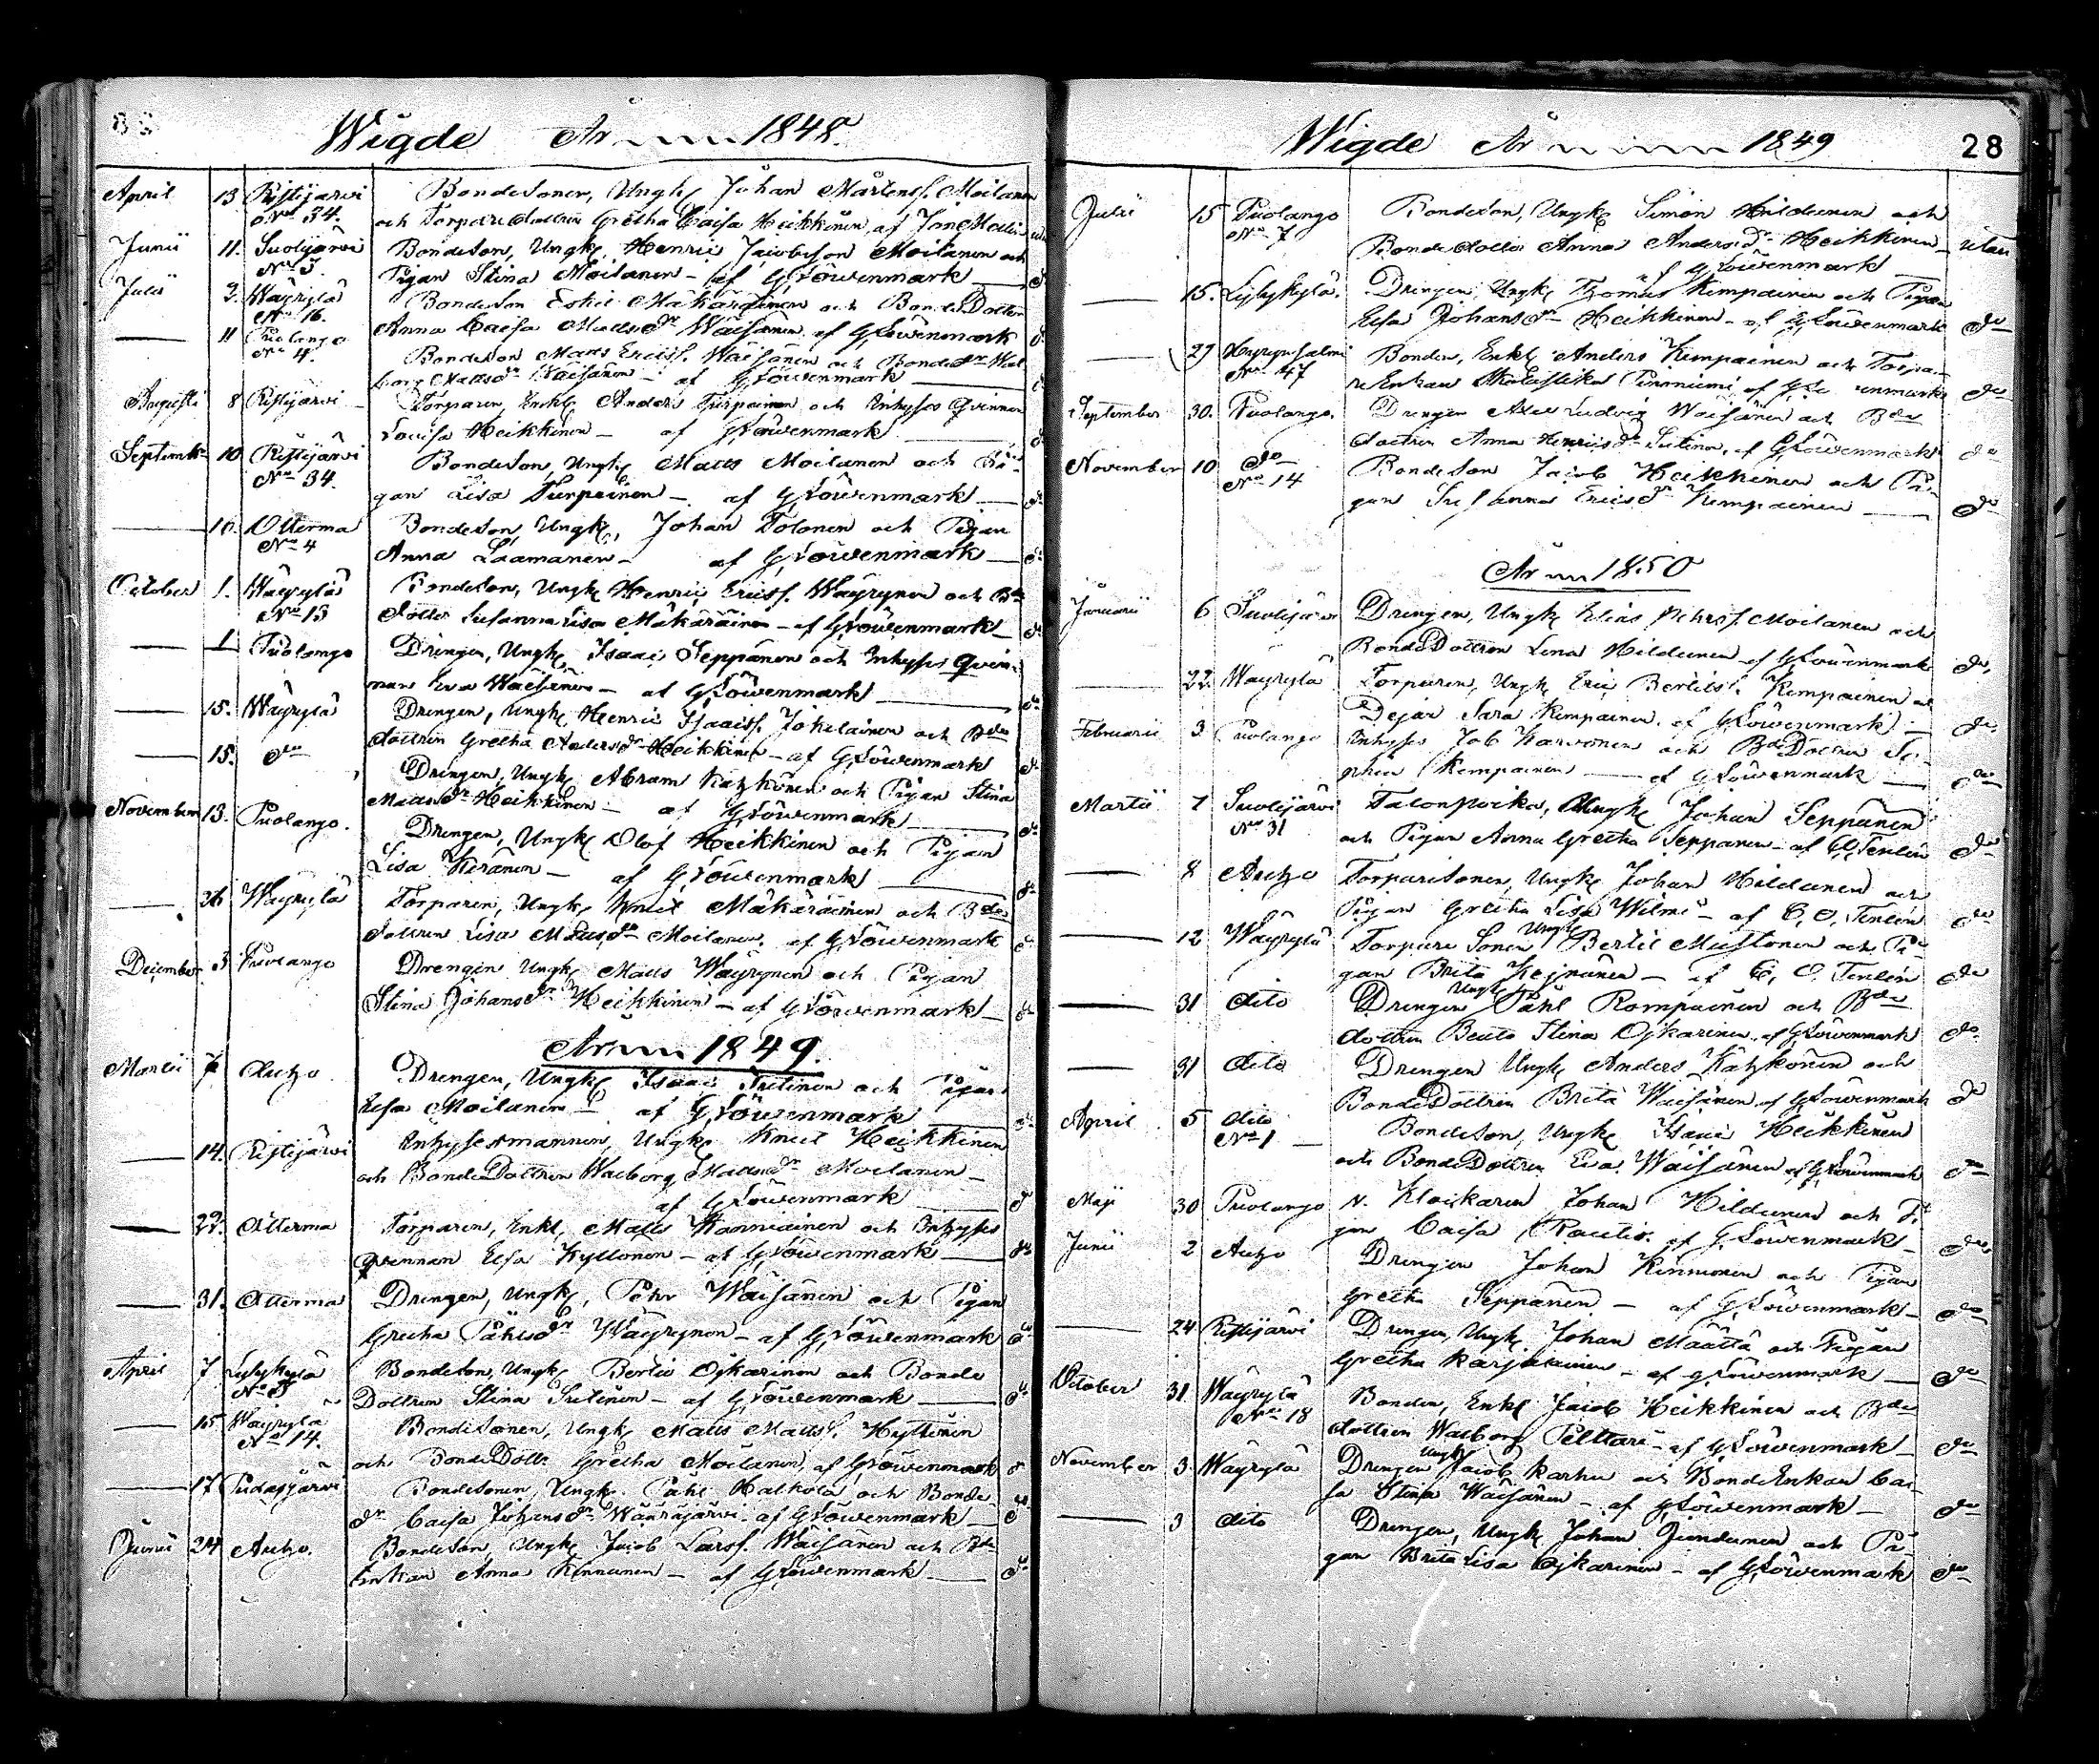 Wigde År 1848.
April 13 Ristijärvi Bondesonen, Ungk, Johan Mårtenss. Moilanen
No 34. och Torparedottren Gretha Caisa Heikkinen, af
Junii 11. Suolijärvi Bondeson, Ungk, Henric Jacobsson Moilanen och
No 5. Pigan Stina Moilanen - af GLöwenmark do
Julii 2. Wäyrylä Bondeson Eskil Mäkäräinen och BondeDotter
No 16. Anna Caisa Matsdr Wäisänen af GLöwenmark do
11 Puolango Bondeson Matts Ericss. Wäisänen och Bondedr Wal
No 4. borg Mattsdr Wäisänen - af GLöwenmark do
Augusti 8 Ristijärvi Torparen, Enkl Anders Turpeinen och Inhyses Qvinnan
Lovisa Heikkinen - af GLöwenmark do
Septemb 10 Ristijärvi Bondeson, Ungk, Matts Moilanen och Pi-
No 34. gan Lisa Turpeinen - af GLöwenmark do
10. Otterma Bondeson, Ungk, Johan Tolonen och Pigan
No 4 Anna Laamanen - af GLöwenmark do
October 1. Wäyrylä Bondeson, Ungk, Henric Ericss. Wäyrynen och Bde
No 13 Dotter Susanna Lisa Mäkäräinen - af GLöwenmark do
1 Puolango Drengen, Ungk, Isaac Seppänen och Inhyses Qvin-
nan Eva Wäisänen - af GLöwenmark do
15. Wäyrylä Drengen, Ungk, Henric Isaacss. Jokelainen och Bde
dottren Gretha Andersdr Heikkinen - af GLöwenmark do
15. do Drengen, Ungk, Abram Kätzkönen och Pigan Stina
Mattsdr Heikkinen - af GLöwenmark do
November 13. Puolango. Drengen, Ungk, Olof Heikkinen och Pigan
Lisa Keränen - af GLöwenmark do
26 Wäyrylä Torparen, Ungk, Knut Mäkäräinen och Bde
dottren Lisa Matsdr Moilanen. af GLöwenmark do
December 3 Puolango Drengen Ungk, Matts Wäyrynen och Pigan
Stina Johansdr Heikkinen - af GLöwenmark do
År 1849.
Martii 7 Autzo Drengen, Ungk, Isaac Sutinen och Pigan
Elsa Moilanen - af GLöwenmark do
14. Ristijärvi Inhysesmannen, Ungk, Knut Heikkinen
och BondeDottren Walborg Mattsdr Moilanen -
af GLöwenmark do
22. Otterma Torparen, Enkl, Matts Kanniainen och Inhyses
qvinnan Elsa Kyllönen - af GLöwenmark do
31. Otterma Drengen, Ungk, Pehr Wäisänen och Pigan
Gretha Påhlsdr Wäyrynen - af GLöwenmark do
April 7 Lylykylä Bondeson, Ungk, Bertil Ojkarinen och Bonde
No 5 Dottren Stina Sutinen - af GLöwenmark do
15 Wäyrylä Bondesonen, Ungk, Matts Mattss. Kyllönen
No 14. och BondeDottr Gretha Moilanen, af GLöwenmark do
17 Pudasjärvi Bondesonen, Ungk. Påhl Halkola och Bonde
dr Caisa Johansdr Wäüräjärvi af GLöwenmark do
Junii 24 Autzo. Bondeson, Ungk, Jacob Larss. Wäisänen och Bde
Enkan Anna Kinnunen - af GLöwenmark do
Wigde År 1849
28
Julii 15 Puolango Bondeson, Ungk, Simon Hildunen och
No 7 Bondedotter Anna Andersdr Heikkinen -
af GLöwenmark
15. Lylykylä. Drengen, Ungk, Thomas Kempainen och Pigan
Elsa Johansdr Heikkinen - af GLöwenmark do
29 Hyrynsalmi Bonden, Enkl Anders Kempainen och Torpa-
No 47 re Enkan af GLöwenmark do
September 30. Puolango. Drengen Axel Ludvig Wäisänen och Bde
dottren Anna Henricsdr Sutinen, af GLöwenmark do
November 10 do Bondeson Jacob Heikkinen och Pi-
No 14 gan Susanna Ericsdr Kempainen do
År 1850
Januarii 6 Suolijärvi Drengen, Ungk, Elias Pehrss. Moilanen och
BondeDottren Lena Hildunen af GLöwenmark do
22. Wäyrylä Torparen, Ungk, Eric Bertilss. Kempainen och
Dejan Sara Kempainen. af GLöwenmark - do
Februarii 3 Puolango Inhyses Job Karvonen och BdeDottren So-
phia Kempainen - af GLöwenmark do
Martii 7 Suolijärvi Talonpoika, Ungk, Johan Seppänen
No 31 och Pigan Anna Gretha Seppänen - af C.O. Tenlén do
8 Autzo Torparesonen, Ungk, Johan Hildunen och
Pigan Gretha Lisa Wilmi - af C. O. Tenlén do
12 Wäyrylä Torpare Sonen Ungk Bertil Mustonen och Pi-
gan Brita Kejnänen - af C. O. Tenlén do
31 dito Drengen Ungk Påhl Rompainen och Bde
dottren Beata Stina Ojkarinen. af GLöwenmark do
31 dito Drengen Ungk, Anders Kätzkönen och
BondeDottren Brita Wäisänen af GLöwenmark do
April 5 dito Bondeson, Ungk, Isaac Heikkinen
No 1 och BondeDottren Eva Wäisänen af GLöwenmark do
Maji 30 Puolango N. Klockaren Johan Hildunen och Pi-
gan Caisa Rautio. af GLöwenmark - do
Junii 2 Autzo Drengen Johan Kinnunen och Pigan
Gretha Seppänen - af GLöwenmark - do
24 Ristijärvi Drengen, Ungk. Johan Määttä och Pigan
Gretha Karjalainen - af GLöwenmark do
October 31 Wäyrylä Bonden, Enkl Jacob Heikkinen och Bde
No 18 dottren Walborg Pelttari - af GLöwenmark - do
November 3. Wäyrylä Drengen Ungk Jacob Karhu och BondeEnkan Cai-
sa Stina Wäisänen - af GLöwenmark - do
3 dito Drengen, Ungk, Johan Jundunen och Pi-
gan Brita Lisa Ojkarinen - af GLöwenmark do